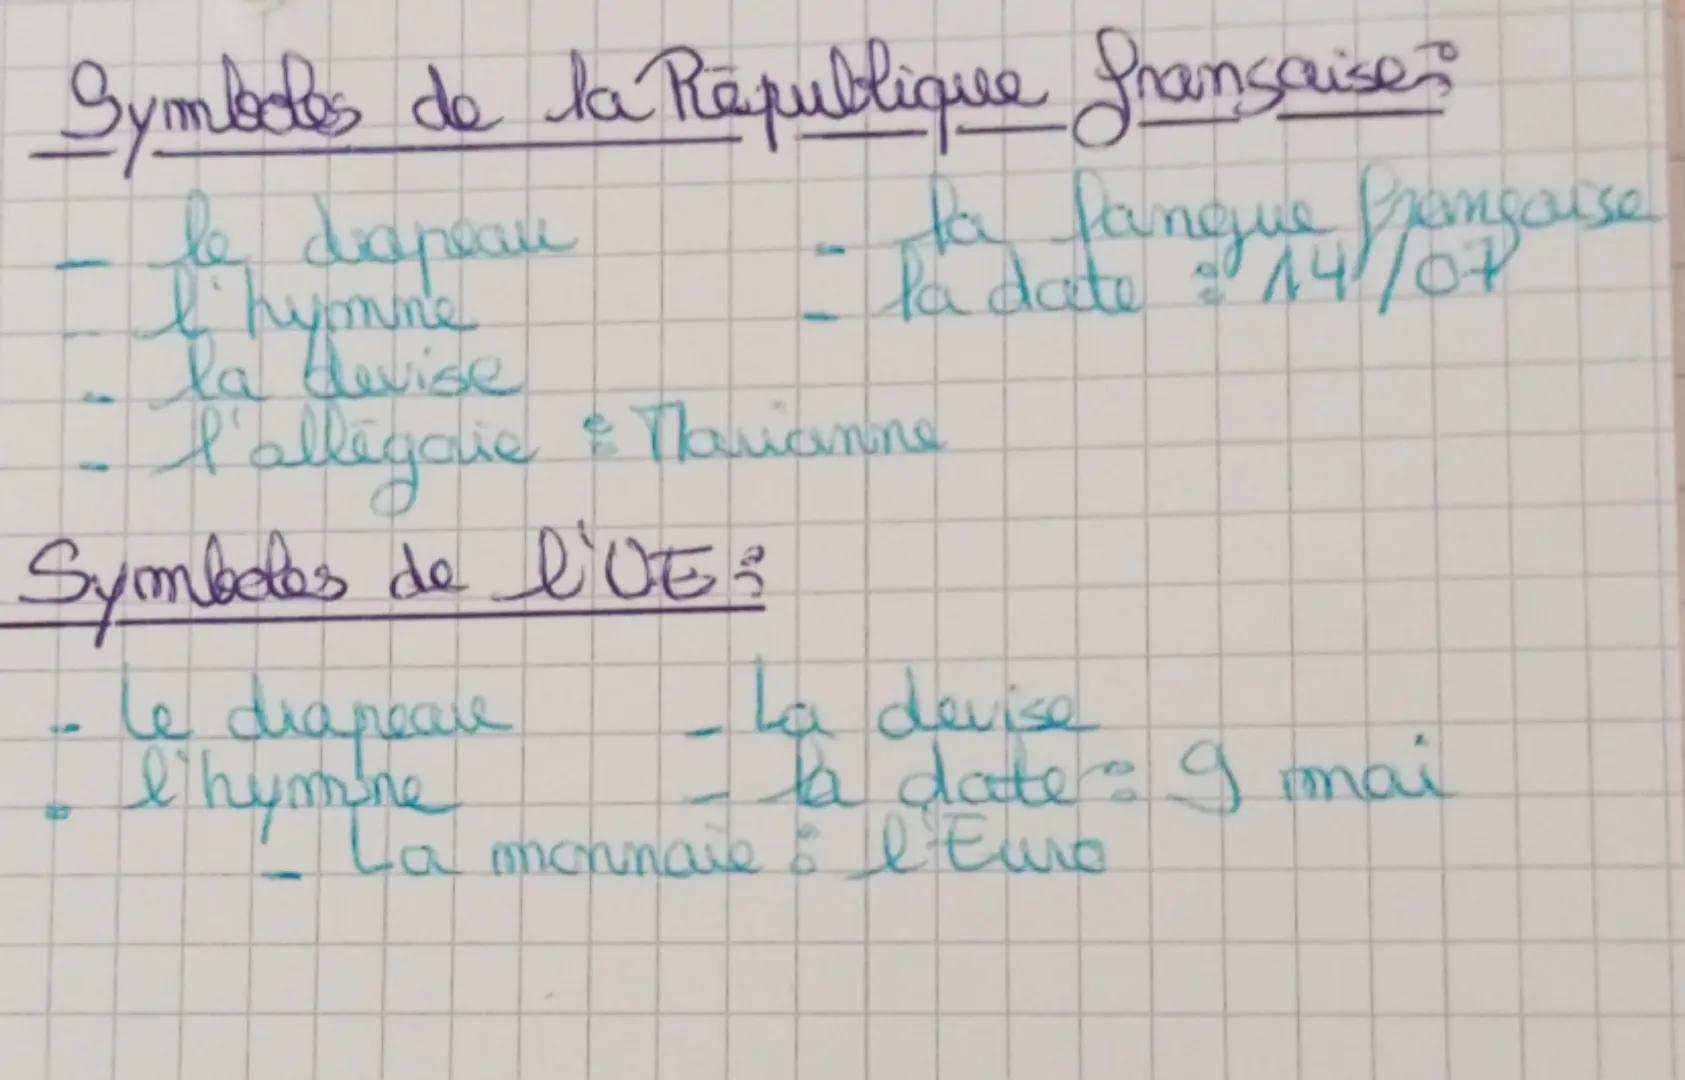 Symboles de la République française :
- le drapeau
- l'hymne
- la devise
- l'allégorie : Marianne
- la langue française
- la date : 14/07
Symboles de l'UE :
- le drapeau
- l'hymne
- La devise
- la date : 9 mai
- La monnaie : l'Euro